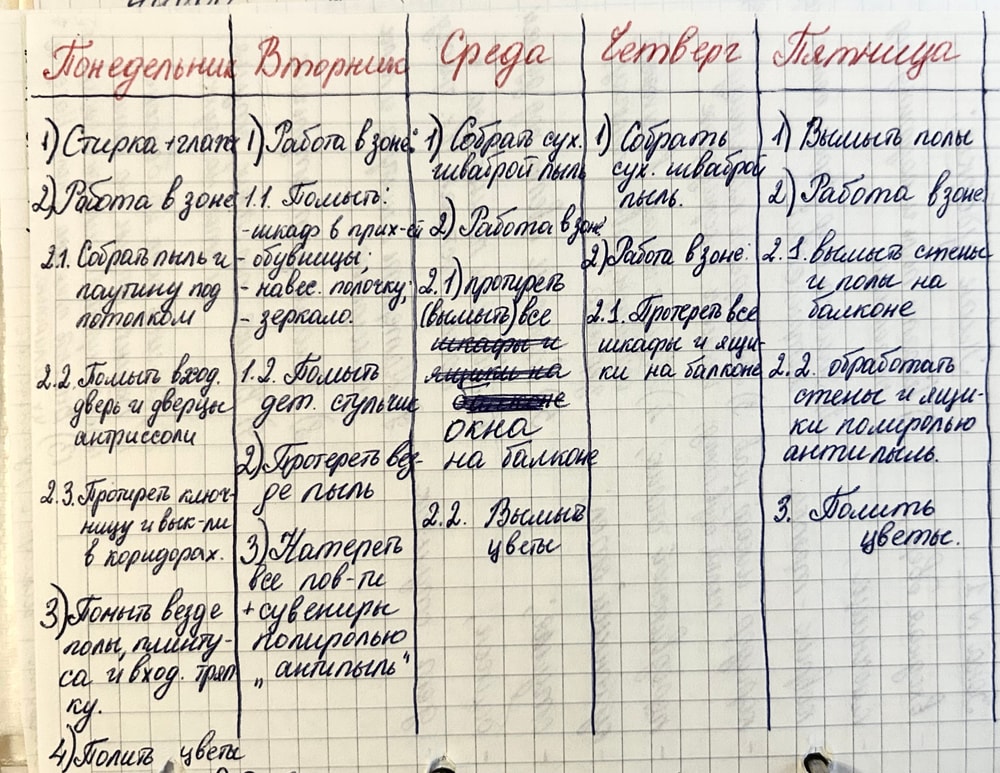 Понедельник
1) Стирка + глаж
2) Работа в зоне
2.1. Собрать пыль и
паутину под
потолком
2.2. Помыть вход.
дверь и дверцы
антриссоли
2.3. Протиреть ключ-
ницу и вык-ли
в коридорах.
3) Помыть везде
полы, плинту-
са и вход. тряп
ку.
4) Полить цветы
Вторник
1) Работа в зоне:
1.1. Помыть:
- шкаф в прих-ей
- обувницы;
- навес. полочку;
- зеркало.
1.2. Помыть
дет. стульчик
2) Протереть вез-
де пыль
3) Натереть
все пов-ти
+ сувениры
полиролью
„антипыль"
Среда
1) Собрать сух.
шваброй пыль
2) Работа в зоне:
2.1) протереть
(вымыть) все
шкафы и
ящики на
окна
на балконе
2.2. Вымыть
цветы
Четверг
1) Собрать
сух. шваброй
пыль.
2) Работа в зоне:
2.1. Протереть все
шкафы и ящи-
ки на балконе
Пятница
1) Вымыть полы
2) Работа в зоне.
2.1. вымыть стены
и полы на
балконе
2.2. обработать
стены и ящи-
ки полиролью
антипыль.
3. Полить
цветы.